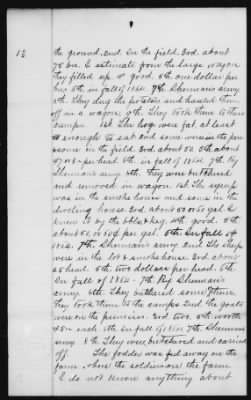 13
the ground. 2nd. In the field. 3rd. about
75 bu. I estimate from the large wagon
they filled up. 4 good. 5th one dollar per
bu. 6th in fall of 1864. 7th Sherman's army.
8th. They dug the potatoes and hauled them
off in a wagon. 9th They took them to their
camps. 1st. The hogs were fat at least
enough to eat and some were in the pen
some in the field. 3rd about 50. 5th about
per head. 6th in fall of 1864. 7th By
Sherman's army. 8th. They were butchered
and removed in wagon. 1st. The syrup
was in the smoke house and some in the
dwelling house. 3rd about 50 or 60 gal. I
knew it by the bbls & keg. 4th good. 5th
about 50 or 60¢ per gal. 6th. In fall of
1864. 7th. Sherman's army. 2nd The Sheep
were in the lot & smoke house. 3rd about
25 head. 5th. two dollars per head. 6th.
In fall of 1864. 7th. By Sherman's
army. 8th. They butchered some there,
they took them to the camps. 2nd. The goats
were on the premises. 3rd two. 5th. worth
each. 6th. In fall of 1864. 7th Sherman's
army. 8th. They were butchered and carried
off. The fodder was fed away on the
farm, where the soldiers on the farm.
I do not know anything about